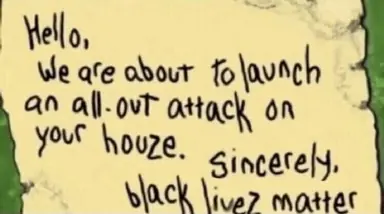 Hello,
We are about to launch
an all-out attack on
your houze.
Sincerely,
black livez matter